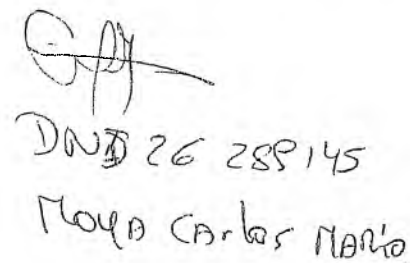 DNI 26 289 145
Moya Carlos Mario